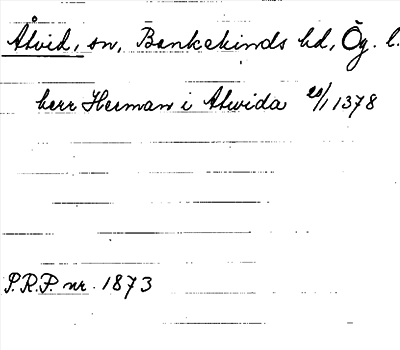 Åtvid, sn, Bankekinds hd, Ög. l.
herr Herman i Atwida 20/1 1378
P.R.P. nr. 1873